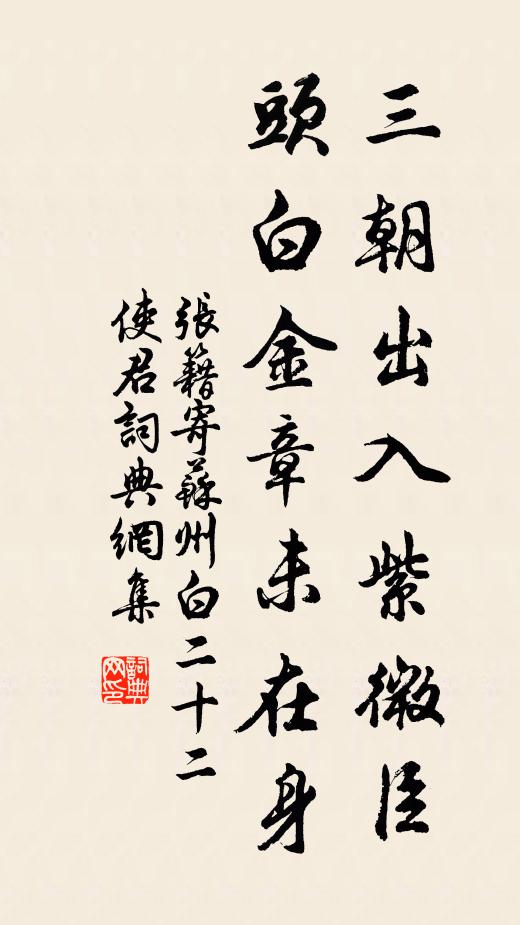 三朝出入紫微臣
頭白金章未在身
張籍寄蘇州白二十二
使君詞典網集
詞典网印